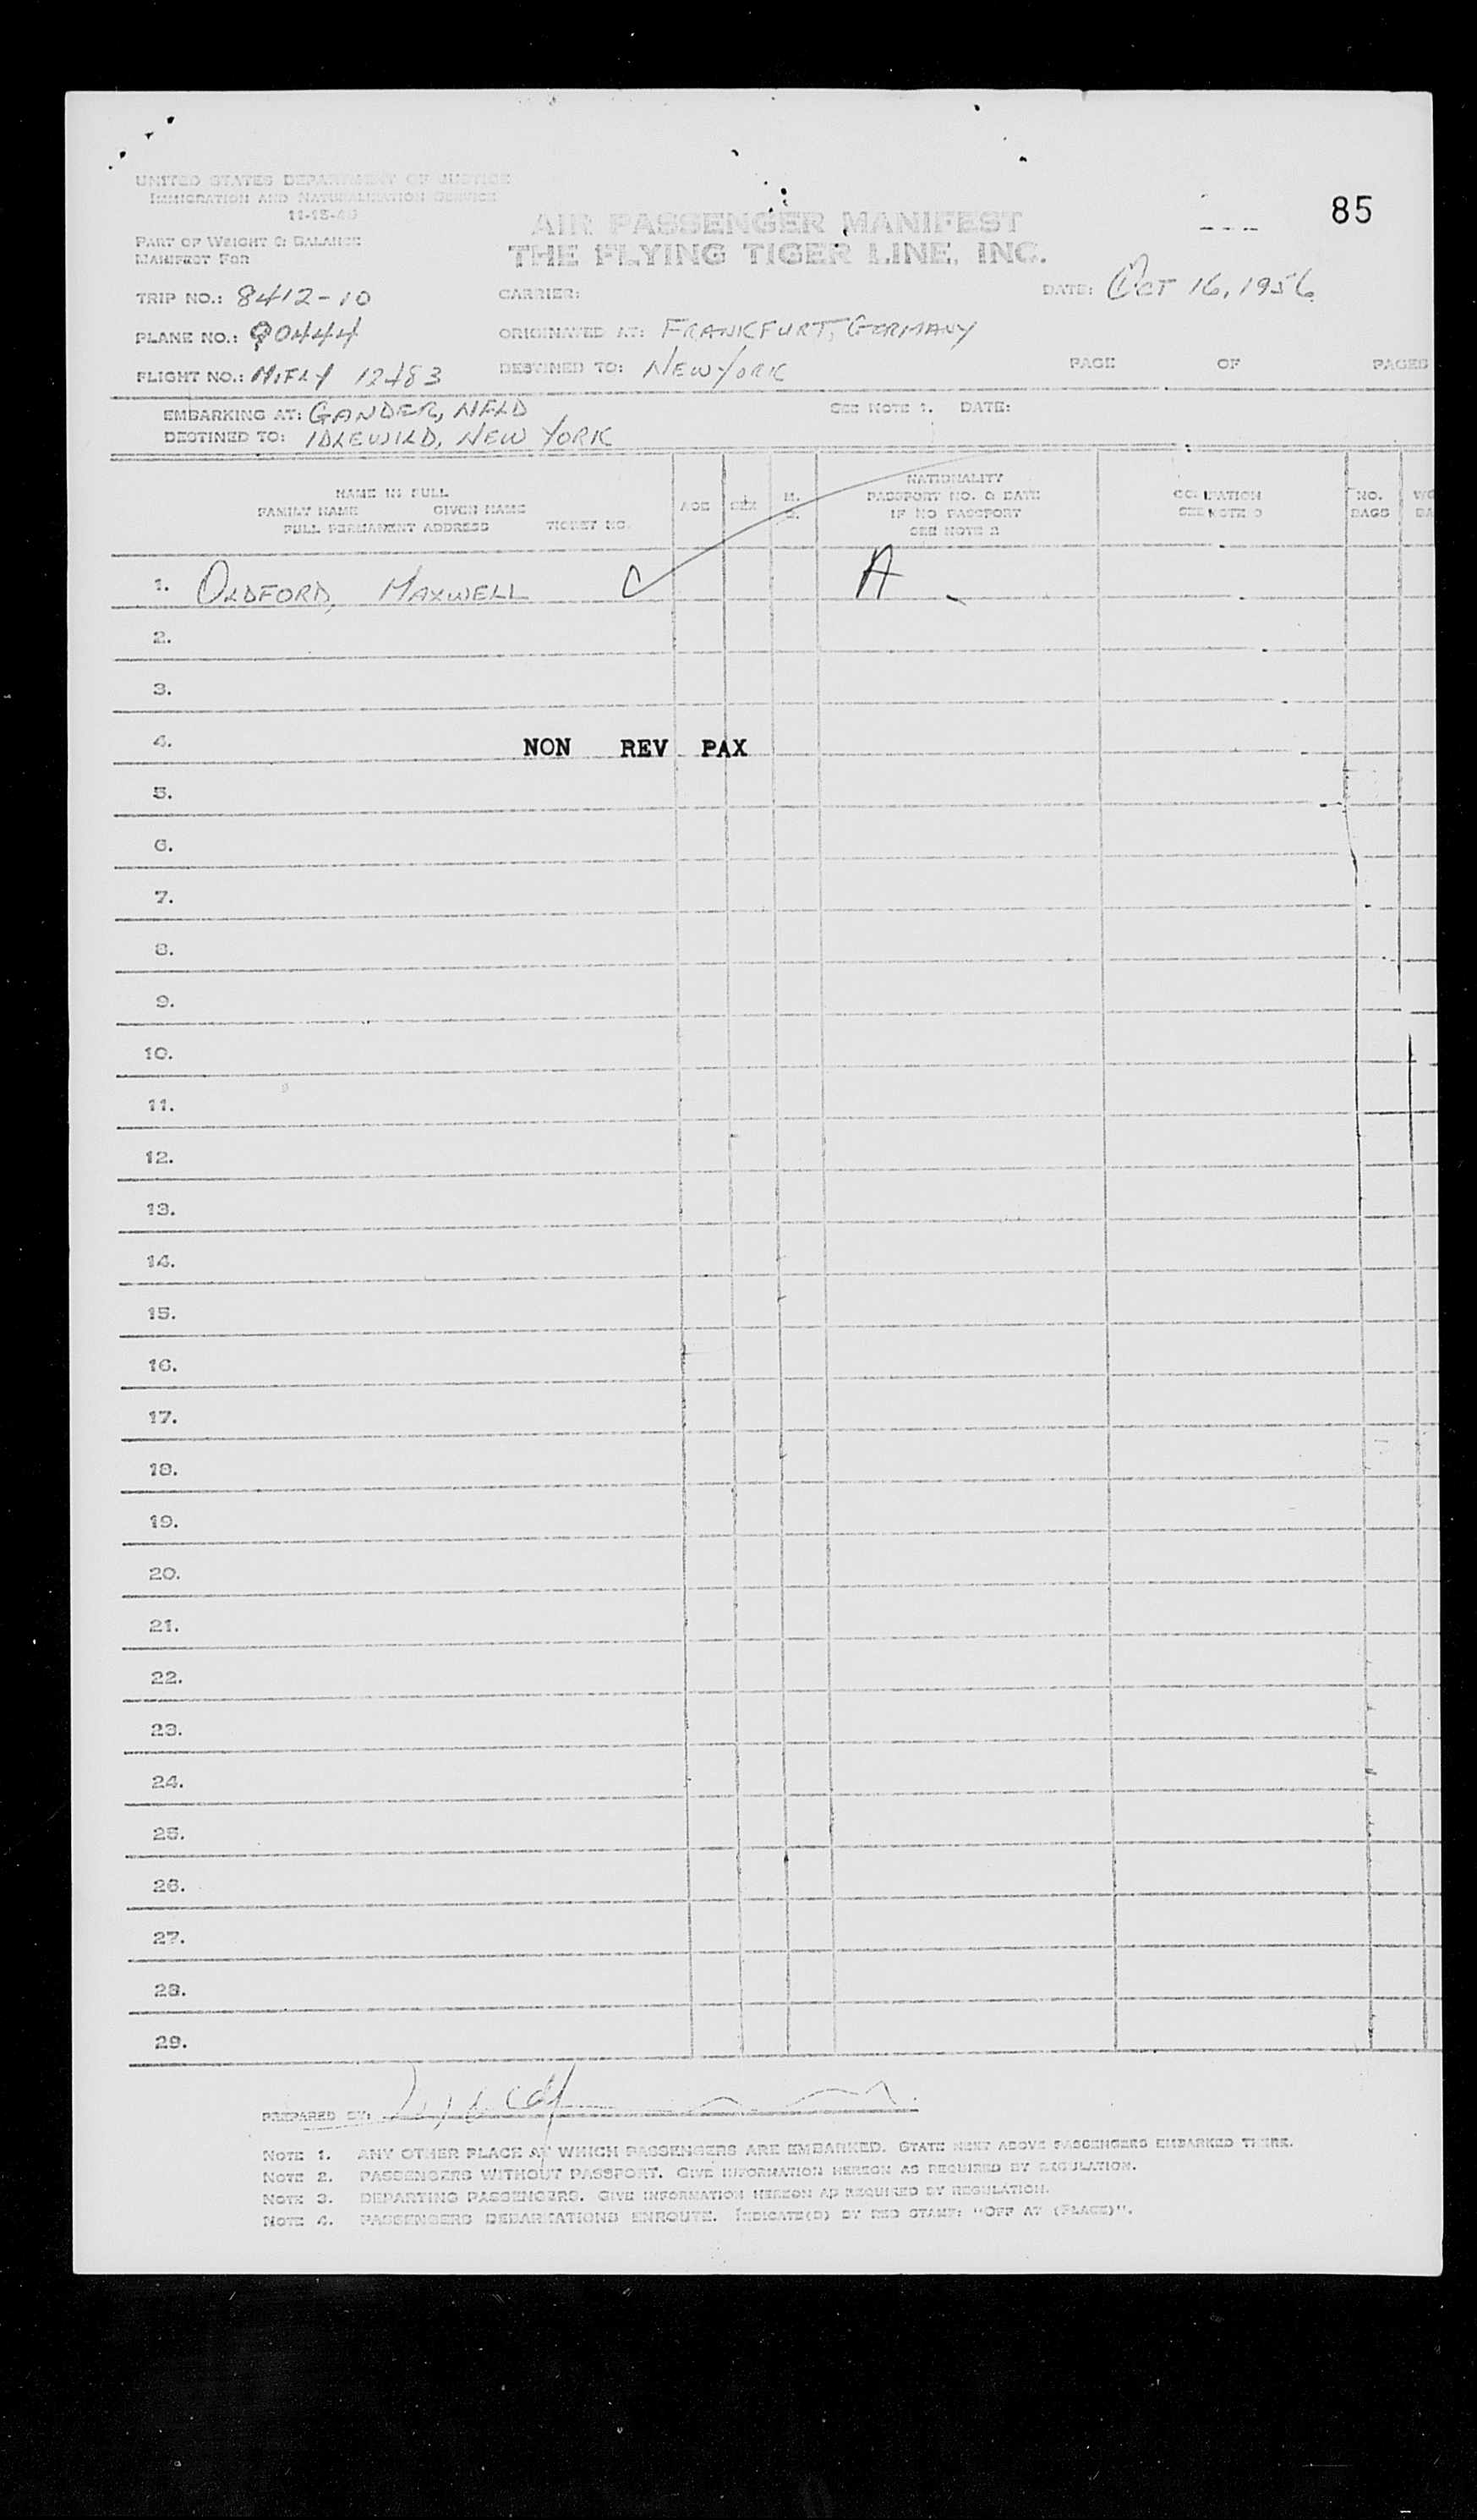 85
UNITED STATES DEPARTMENT OF JUSTICE
IMMIGRATION AND NATURALIZATION SERVICE
11-15-49
PART OF WEIGHT & BALANCE
MANIFEST FOR
AIR PASSENGER MANIFEST
THE FLYING TIGER LINE, INC.
TRIP NO.: 8412-10 CARRIER: DATE: OCT 16, 1956
PLANE NO.: 90444 ORIGINATED AT: FRANKFURT, GERMANY
FLIGHT NO.: M.FLY 12483 DESTINED TO: NEW YORK PAGE OF PAGES
EMBARKING AT: GANDER, NFLD SEE NOTE 1. DATE:
DESTINED TO: IDLEWILD, NEW YORK
NAME IN FULL
FAMILY NAME GIVEN NAME
FULL PERMANENT ADDRESS TICKET NO.
AGE SEX M. S.
NATIONALITY
PASSPORT NO. & DATE
IF NO PASSPORT
SEE NOTE 2
OCCUPATION
SEE NOTE 3
NO.
BAGS
1. OLDFORD, MAXWELL A
2.
3.
4. NON REV PAX
5.
6.
7.
8.
9.
10.
11.
12.
13.
14.
15.
16.
17.
18.
19.
20.
21.
22.
23.
24.
25.
26.
27.
28.
29.
PREPARED BY:
NOTE 1. ANY OTHER PLACE AT WHICH PASSENGERS ARE EMBARKED. STATE NEXT ABOVE PASSENGERS EMBARKED THERE.
NOTE 2. PASSENGERS WITHOUT PASSPORT. GIVE INFORMATION HEREON AS REQUIRED BY REGULATION.
NOTE 3. DEPARTING PASSENGERS. GIVE INFORMATION HEREON AS REQUIRED BY REGULATION.
NOTE 4. PASSENGERS DEBARKATIONS ENROUTE. INDICATE(D) BY RED STAMP: "OFF AT (PLACE)".